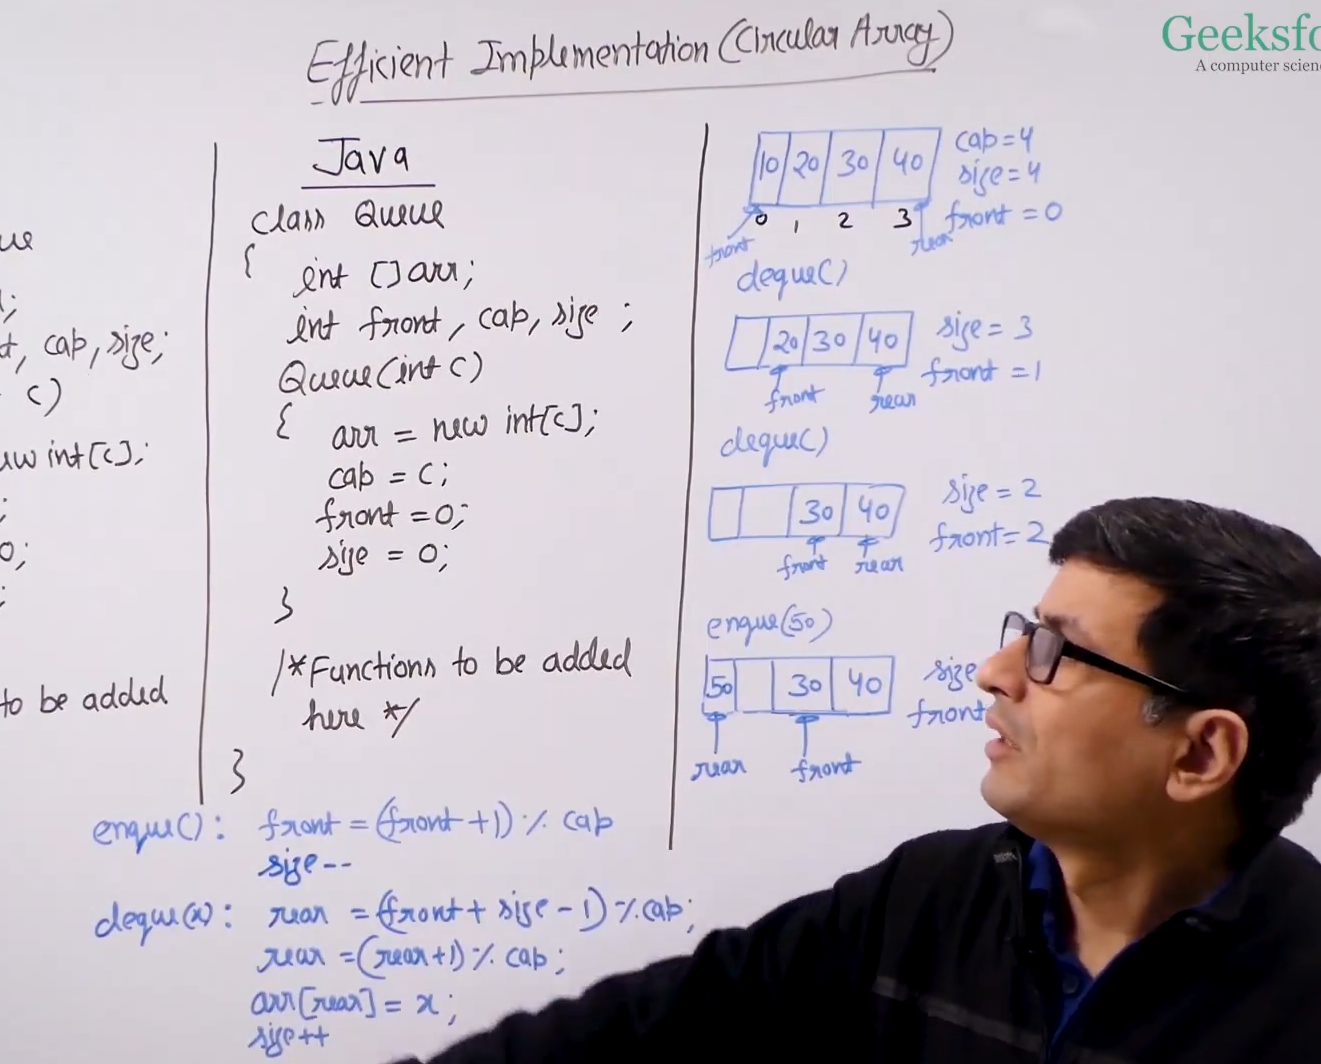 Efficient Implementation (Circular Array)
Geeksfo
A computer scien
ue
;
t, cap, size;
c)
ew int[c];
;
0;
;
to be added
Java
class Queue
{
int []arr;
int front, cap, size ;
Queue(int c)
{ arr = new int[c];
cap = c;
front =0;
size = 0;
}
/*Functions to be added
here */
}
10 20 30 40
cap=4
size=4
front =0
0 1 2 3
front
rear
deque()
20 30 40
size = 3
front =1
front
rear
deque()
30 40
size = 2
front=2
front
rear
enque(50)
50 30 40
size
front
rear
front
enque(): front =(front+1) % cap
size--
deque(x): rear =(front+ size-1)%cap;
rear =(rear+1)% cap;
arr[rear]= x;
size++